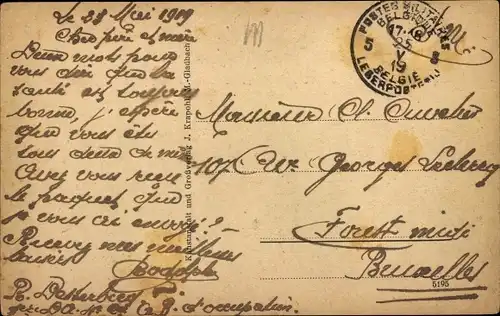 Le 23 Mai 1919
Cher père et mère
Deux mots pour
vous dire que la
santé est toujours
bonne, j'espère
que vous êtes
tous deux de même
Avez vous reçu
le paquet que
je vous ai envoyé ?
Recevez mes meilleurs
baisers
Rodolphe
d'occupation.
Kunstanstalt und Großverlag J. Krapohl, M.-Gladbach
POSTES MILITAIRES
BELGIQUE
17-18
25
V
19
5 5
BELGIE
LEGERPOSTERIJ
S.M.
Monsieur Cl.
107 Av. Georges Leclercq
Forest midi
Bruxelles
5195